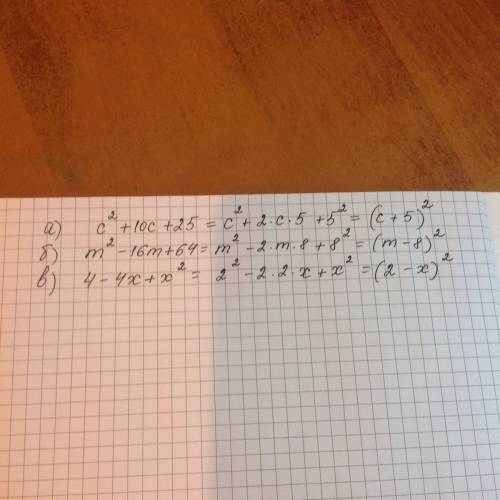 а) c² + 10c + 25 = c² + 2·c·5 + 5² = (c + 5)²
б) m² - 16m + 64 = m² - 2·m·8 + 8² = (m - 8)²
в) 4 - 4x + x² = 2² - 2·2·x + x² = (2 - x)²